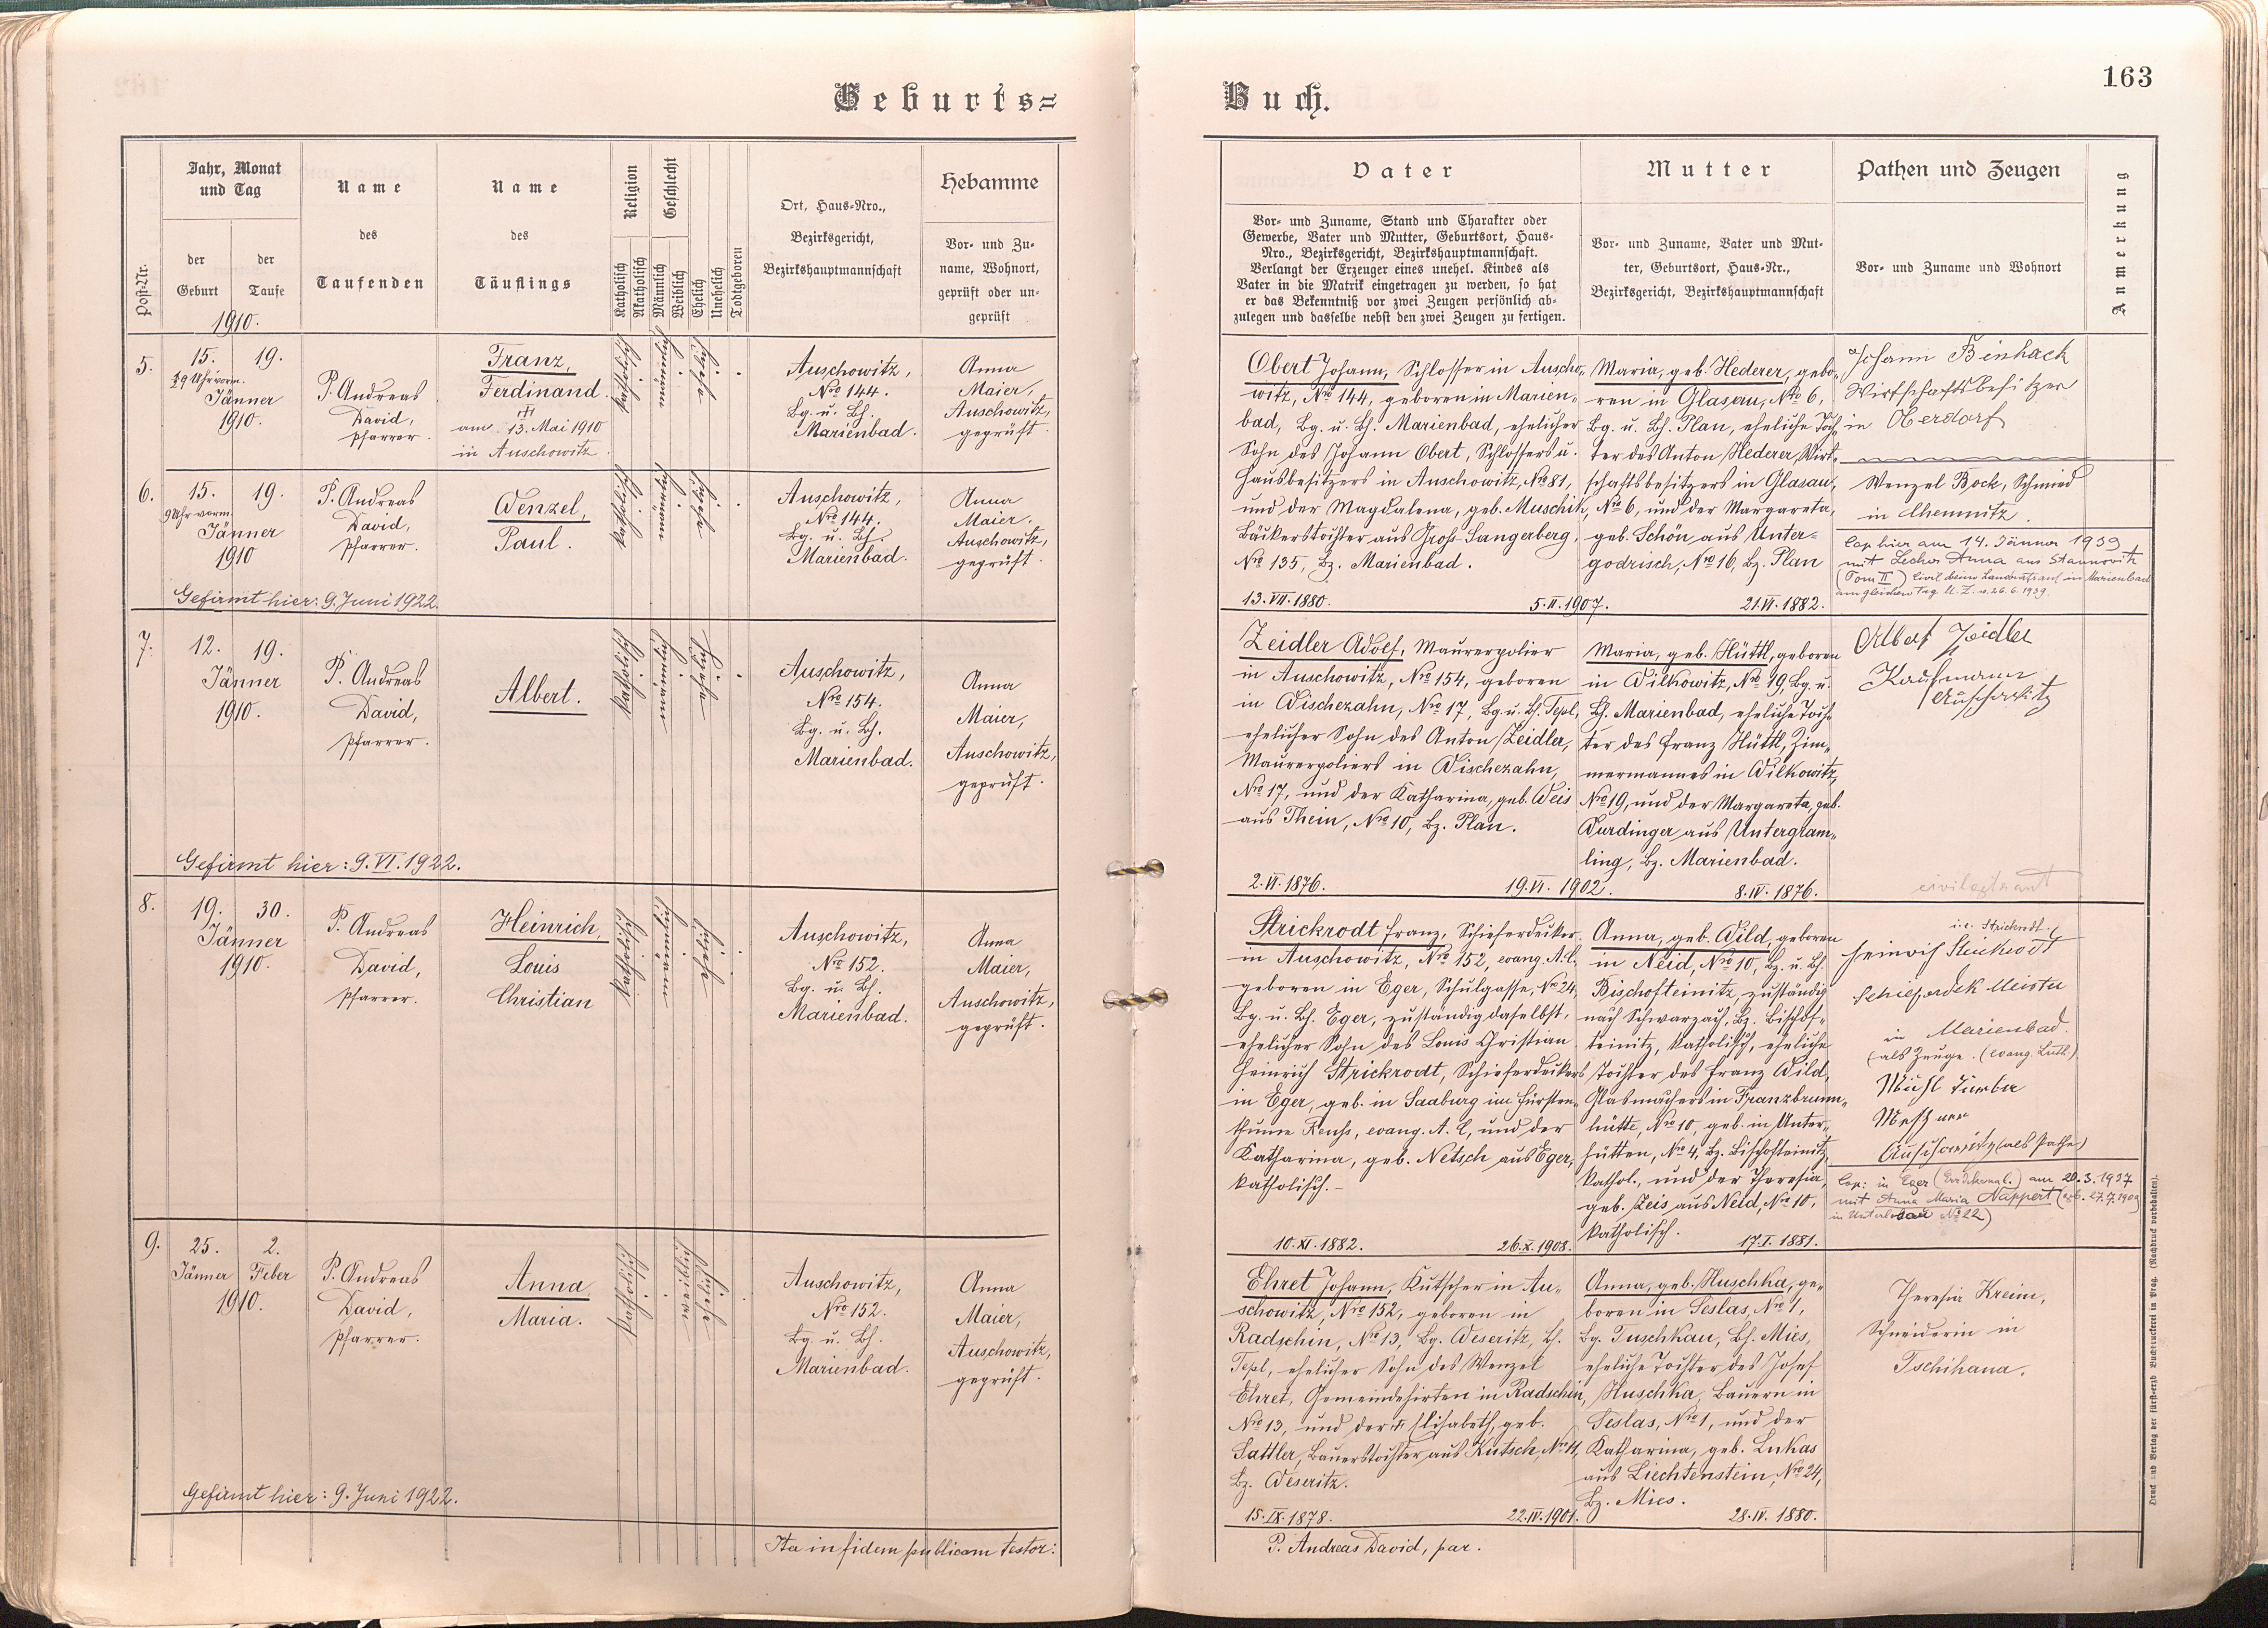 Geburts=
Jahr, Monat
und Tag
der
Geburt
der
Taufe
1910.
Post-Nr.
Name
des
Taufenden
Name
des
Täuflings
Religion
Katholisch
Akatholisch
Geschlecht
Männlich
Weiblich
Ehelich
Unehelich
Todtgeboren
Ort, Haus-Nro.,
Bezirksgericht,
Bezirkshauptmannschaft
Hebamme
Vor- und Zu-
name, Wohnort,
geprüft oder un-
geprüft
5.
15. 19.
½9 Uhr vorm.
Jänner
1910.
P. Andreas
David,
Pfarrer.
Franz,
Ferdinand.
am 13. Mai 1910
in Auschowitz
katholisch
männlich
ehelich
Auschowitz,
Nro 144.
Bg. u. Bh.
Marienbad.
Anna
Maier,
Auschowitz,
geprüft.
6.
15. 19.
9 Uhr vorm.
Jänner
1910
P. Andreas
David,
Pfarrer.
Wenzel,
Paul.
katholisch
männlich
ehelich
Auschowitz,
Nro 144.
Bg. u. Bh.
Marienbad.
Anna
Maier,
Auschowitz,
geprüft.
Gefirmt hier: 9. Juni 1922.
7.
12. 19.
Jänner
1910.
P. Andreas
David,
Pfarrer.
Albert.
katholisch
männlich
ehelich
Auschowitz,
Nro 154.
Bg. u. Bh.
Marienbad.
Anna
Maier,
Auschowitz,
geprüft.
Gefirmt hier: 9. VI. 1922.
8.
19. 30.
Jänner
1910.
P. Andreas
David,
Pfarrer.
Heinrich,
Louis
Christian
katholisch
männlich
ehelich
Auschowitz,
Nro 152.
Bg. u. Bh.
Marienbad.
Anna
Maier,
Auschowitz,
geprüft.
9.
25. 2.
Jänner Feber
1910.
P. Andreas
David,
Pfarrer.
Anna
Maria.
katholisch
weiblich
ehelich
Auschowitz,
Nro 152.
Bg. u. Bh.
Marienbad.
Anna
Maier,
Auschowitz,
geprüft.
Gefirmt hier: 9. Juni 1922.
Ita in fidem publicam testor:
163
Buch.
Vater
Vor- und Zuname, Stand und Charakter oder
Gewerbe, Vater und Mutter, Geburtsort, Haus-
Nro., Bezirksgericht, Bezirkshauptmannschaft.
Verlangt der Erzeuger eines unehel. Kindes als
Vater in die Matrik eingetragen zu werden, so hat
er das Bekenntniß vor zwei Zeugen persönlich ab-
zulegen und dasselbe nebst den zwei Zeugen zu fertigen.
Mutter
Vor- und Zuname, Vater und Mut-
ter, Geburtsort, Haus-Nr.,
Bezirksgericht, Bezirkshauptmannschaft
Pathen und Zeugen
Vor- und Zuname und Wohnort
Anmerkung
Obert Johann, Schlosser in Auscho-
witz, Nro 144, geboren in Marien-
bad, Bg. u. Bh. Marienbad, ehelicher
Sohn des Johann Obert, Schlossers u.
Hausbesitzers in Auschowitz, Nro 81,
und der Magdalena, geb. Muschik,
Bäckerstochter aus Groß-Sangerberg,
Nro 135, Bz. Marienbad.
13. VII. 1880. 5. II. 1907.
Maria, geb. Hederer, gebo-
ren in Glasau, Nro 6,
Bg. u. Bh. Plan, eheliche Toch-
ter des Anton Hederer, Wirt-
schaftsbesitzers in Glasau,
Nro 6, und der Margareta,
geb. Schön aus Unter-
godrisch, Nro 16, Bz. Plan
21. VI. 1882.
Johann Binhack
Wirtschaftsbesitzer
in Oberdorf
Wenzel Bock, Schmied
in Chemnitz.
Cop. hier am 14. Jänner 1939
mit Anna aus
(Tom II) Civil beim Landratsamt in Marienbad
am gleichen Tag. 26. 6. 1939.
Zeidler Adolf, Maurerpolier
in Auschowitz, Nro 154, geboren
in Wischezahn, Nro 17, Bg. u. Bh. Tepl,
ehelicher Sohn des Anton Zeidler,
Maurerpoliers in Wischezahn,
Nro 17, und der Katharina, geb. Weis
aus Thein, Nro 10, Bz. Plan.
2. VI. 1876. 19. VI. 1902.
Maria, geb. Hüttl, geboren
in Wilkowitz, Nro 19, Bg. u.
Bh. Marienbad, eheliche Toch-
ter des Franz Hüttl, Zim-
mermannes in Wilkowitz,
Nro 19, und der Margareta, geb.
Wurdinger aus Untergram-
ling, Bz. Marienbad.
8. IV. 1876.
Albert Zeidler
Kaufmann
Auschowitz
civilgetraut
Strickrodt Franz, Schieferdecker
in Auschowitz, Nro 152, evang. A. C.
geboren in Eger, Schulgasse, No 24,
Bg. u. Bh. Eger, zuständig daselbst,
ehelicher Sohn des Louis Christian
Heinrich Strickrodt, Schieferdeckers
in Eger, geb. in Saaburg im Fürsten-
thume Reuß, evang. A. C, und der
Katharina, geb. Netsch aus Eger,
katholisch.
10. XI. 1882. 26. X. 1908.
Anna, geb. Wild, geboren
in Neid, Nro 10, Bg. u. Bh.
Bischofteinitz, zuständig
nach Schwarzach, Bz. Bischof-
teinitz, katholisch, eheliche
Tochter des Franz Wild,
Glasmachers in Franzbrunn-
hütte, Nro 10, geb. in Unter-
hütten, Nro 4, Bz. Bischofteinitz,
kathol., und der Theresia,
geb. Zeis aus Neid, Nro 10,
katholisch.
17. I. 1881.
i. e. Strickrodt
Heinrich Strickrodt
Schieferdek Meister
in Marienbad.
(als Zeuge. (evang. Luth.)
Mesner
Auschowitz (als Pathe)
Cop: in Eger am 20. 3. 1937
mit Anna Maria Nappert (geb. 27. 7. 1909
in No 22)
Ehret Johann, Kutscher in Au-
schowitz, Nro 152, geboren in
Radschin, Nro 13, Bg. Weseritz, Bh.
Tepl, ehelicher Sohn des Wenzel
Ehret, Gemeindehirten in Radschin,
No 13, und der Elisabeth, geb.
Sattler, Bauerstochter aus Kutsch, Nro 11,
Bz. Weseritz.
15. IX. 1878. 22. IV. 1901.
Anna, geb. Huschka, ge-
boren in Seslas, Nro 1,
Bg. Tuschkau, Bh. Mies,
eheliche Tochter des Josef
Huschka, Bauern in
Seslas, Nro 1, und der
Katharina, geb. Lukas
aus Liechtenstein, Nro 24,
Bz. Mies.
28. IV. 1880.
Theresia Kreim,
Schneiderin in
Tschihana.
P. Andreas David, par.
Druck und Verlag der fürst-erzb. Buchdruckerei in Prag. (Nachdruck vorbehalten).